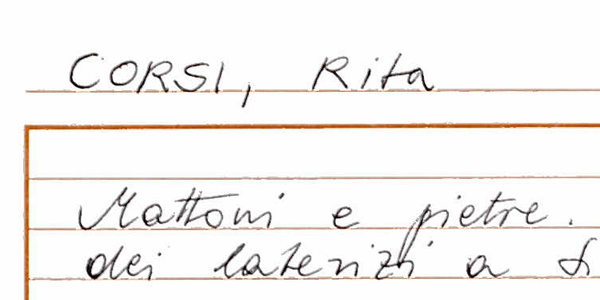 CORSI, Rita
Mattoni e pietre.
dei laterizi a